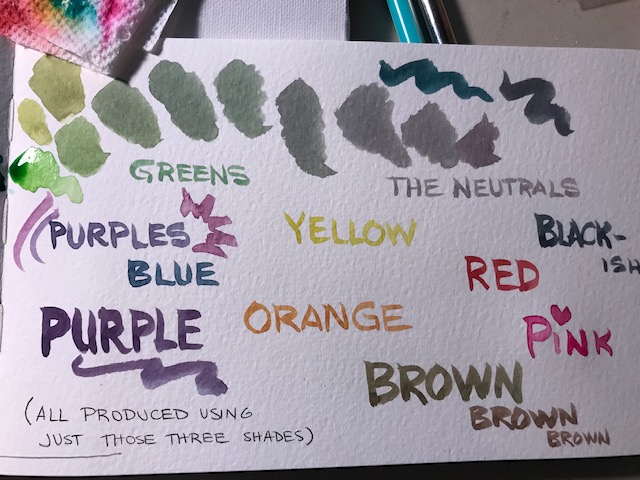 GREENS
THE NEUTRALS
PURPLES
YELLOW
BLACK-
ISH
BLUE
RED
PURPLE
ORANGE
PINK
BROWN
BROWN
BROWN
(ALL PRODUCED USING
JUST THOSE THREE SHADES)